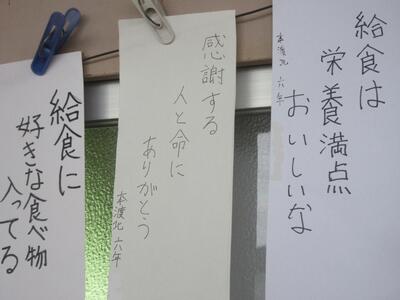 給食は
栄養満点
おいしいな
本渡北 六年
感謝する
人と命に
ありがとう
本渡北 六年
給食に
好きな食べ物
入ってる